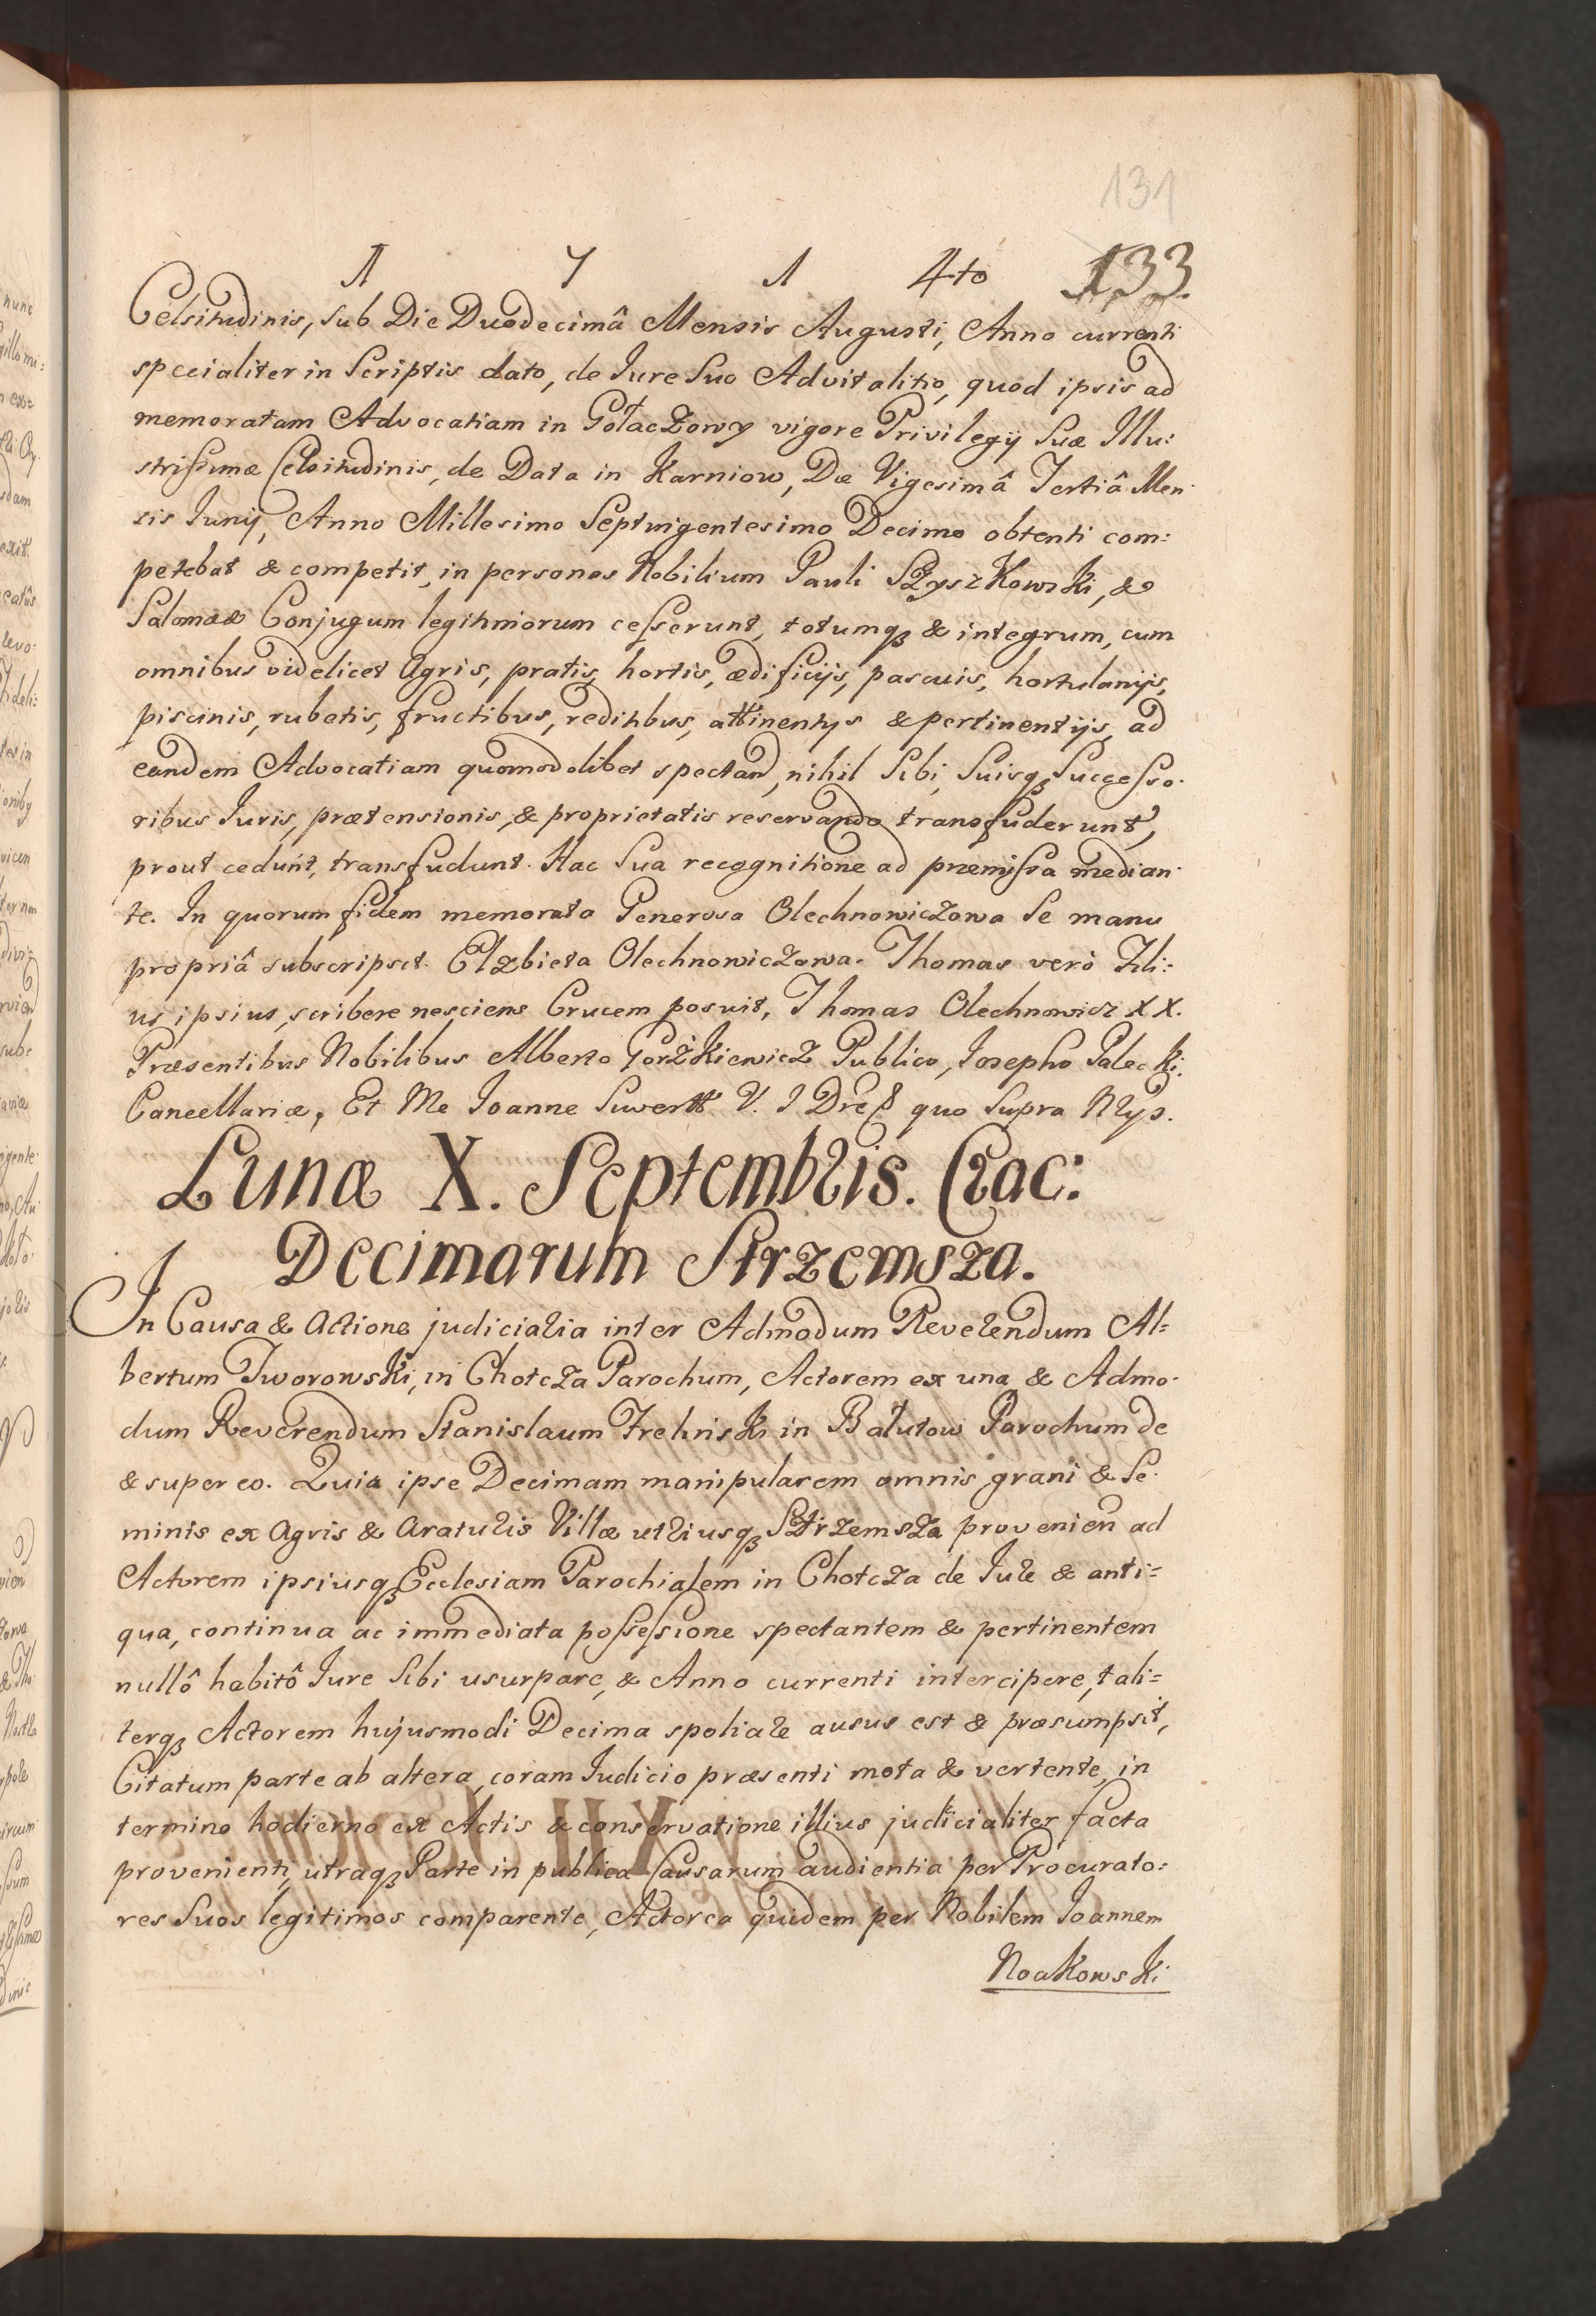 131
1 7 1 4to 133.
Celsitudinis, sub Die Duodecimâ Mensis Augusti, Anno currenti
specialiter in Scriptis dato, de Iure Suo Advitalitio, quod ipsis ad
memoratam Advocatiam in Gołaczowy vigore Privilegij Suæ Illu:
strissimæ Celsitudinis, de Data in Karniow, Die Vigesimâ Tertiâ Men
sis Iunij, Anno Millesimo Septuigentesimo Decimo obtenti com:
petebat & competit, in personas Nobilium Pauli Szyszkowski, &
Salomææ Conjugum legitimorum cesserunt, totumq3 & integrum, cum
omnibus videlicet Agris, pratis, hortis, ædificijs, pascuis, hortulanijs,
piscinis, rubetis, fructibus, reditibus, attinentijs & pertinentijs, ad
eandem Advocatiam quomodolibet spectand, nihil Sibi, Suisq3 Successo-
ribus Iuris, prætensionis, & proprietatis reservando transfuderunt,
prout cedunt, transfudunt. Hac Sua recognitione ad præmissa median-
te. In quorum fidem memorata Generosa Olechnowiczowa Se manu
propriâ subscripsit. Elzbieta Olechnowiczowa. Thomas verò Fili:
us ipsius, scribere nesciens Crucem posuit, Thomas Olechnowicz XX.
Præsentibus Nobilibus Alberto Gorżkiewicz Publico, Iosepho Palecki
Cancellariæ, Et Me Ioanne Suwertt V. I Dre quo Supra Nrijs.
Lunæ X. Septembris. Crac:
Decimarum Strzemsza.
In Causa & Actione judiciaria inter Admodum Reverendum Al=
bertum Tworowski, in Chotcza Parochum, Actorem ex una & Admo-
dum Reverendum Stanislaum Frelinski in Bałutow Parochum de
& super eo. Quia ipse Decimam manipularem omnis grani & Se-
minis ex Agris & Araturis Villæ utriusq3 Strzemsza provenien ad
Actorem ipsiusq3 Ecclesiam Parochialem in Chotcza de Iure & anti=
qua, continua ac immediata possessione spectantem & pertinentem
nullô habitô Iure Sibi usurpare, & Anno currenti intercipere, tali=
terq3 Actorem hujusmodi Decima spoliare ausus est & præsumpsit,
Citatum parte ab altera, coram Iudicio præsenti mota & vertente, in
termino hodierno ex Actis & conservatione illius judicialiter facta
provenienti, utraq3 Parte in publica Causarum audientia per Procurato:
res Suos legitimos comparente, Actorea quidem per Nobilem Ioannem
Noakowski